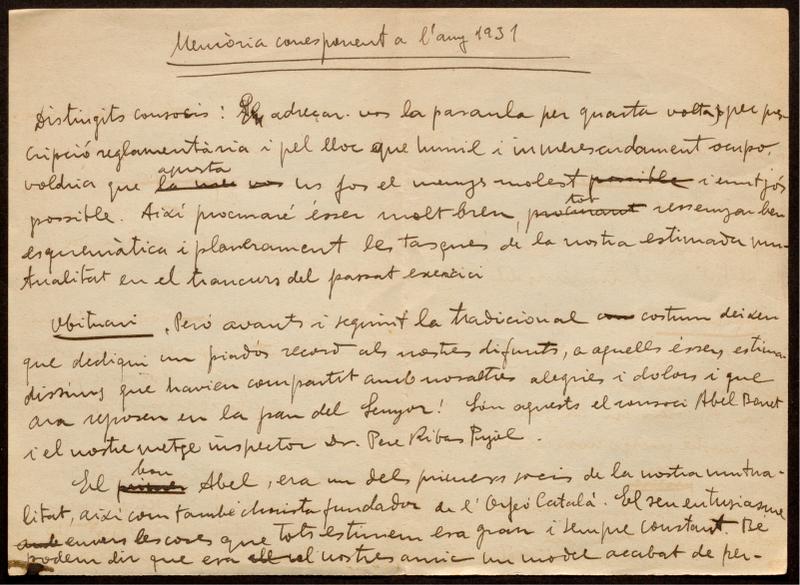 Memòria corresponent a l'any 1931
Distingits consocis: adreçar-vos la paraula per quarta volta, per pres-
cripció reglamentària i pel lloc que humil i immerescudament ocupo,
aquesta
voldria que us fos el menys molest possible i enutjós
possible. Així procuraré ésser molt breu, procurant ressenyar ben
tot
esquemàtica i planerament les tasques de la nostra estimada mu-
tualitat en el transcurs del passat exercici
Obituari. Però avants i seguint la tradicional costum deixeu
que dediqui un piadós record als nostres difunts, a aquells éssers estima-
díssims que havien compartit amb nosaltres alegries i dolors i que
ara reposen en la pau del Senyor! Són aquests el consoci Abel Benet
i el nostre metge inspector Dr. Pere Ribas Pujol.
bon
El primer Abel, era un dels primers socis de la nostra mutua-
litat, així com també chorista fundador de l'Orfeó Català. El seu entusiasme
envers les coses que tots estimem era gran i sempre constant. Bé
podem dir que era el nostre amic un model acabat de per-